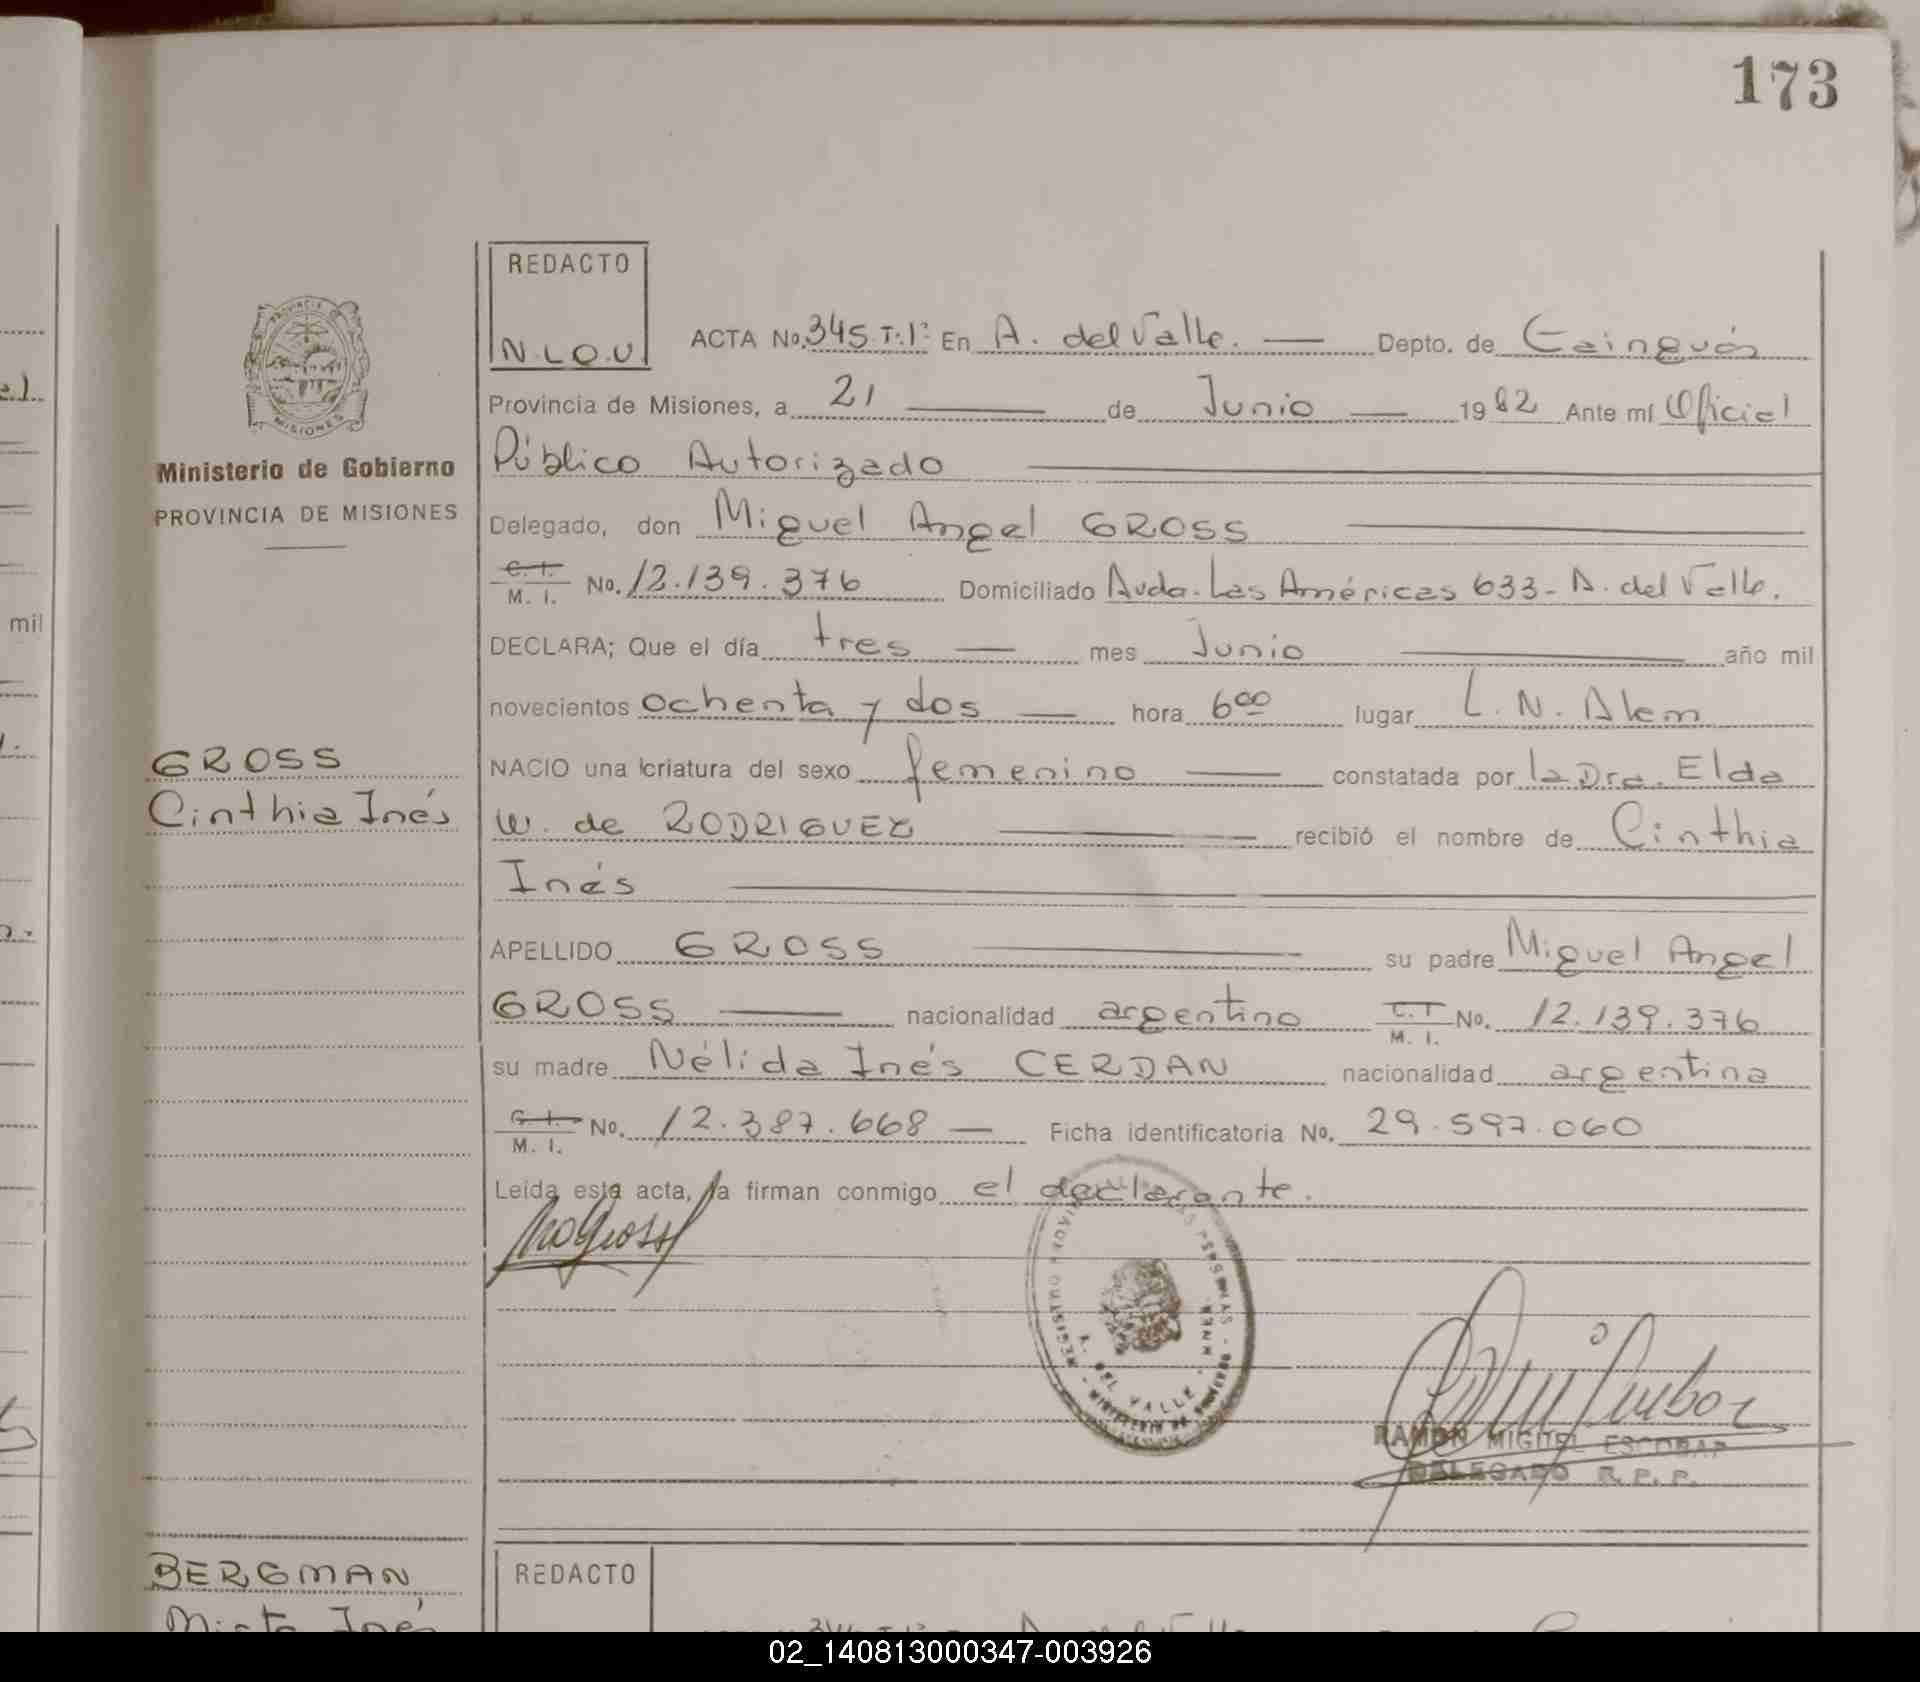 173
REDACTO
N.L.O.U.
ACTA No. 345.T:1º En A. del Valle. Depto. de Cainguás
Provincia de Misiones, a 21 de Junio 1982 Ante mí Oficial
Público Autorizado
Delegado, don Miguel Angel GROSS
C. I.
M. I. No. 12.139.376 Domiciliado Avda. Las Américas 633- A. del Valle.
DECLARA; Que el día tres mes Junio año mil
novecientos ochenta y dos hora 6⁰⁰ lugar L. N. Alem
NACIO una criatura del sexo femenino constatada por la Dra. Elda
W. de RODRIGUEZ recibió el nombre de Cinthia
Inés
APELLIDO GROSS su padre Miguel Angel
GROSS nacionalidad argentino C. I.
M. I. No. 12.139.376
su madre Nélida Inés CERDAN nacionalidad argentina
C. I.
M. I. No. 12.387.668 Ficha identificatoria No. 29.597.060
Leída esta acta, la firman conmigo el declarante.
RAMON MIGUEL ESCOBAR
DELEGADO R. P. P.
PROVINCIA DE
MISIONES
Ministerio de Gobierno
PROVINCIA DE MISIONES
GROSS
Cinthia Inés
mil
A. DEL VALLE
BERGMAN,
Inés
REDACTO
02_140813000347-003926